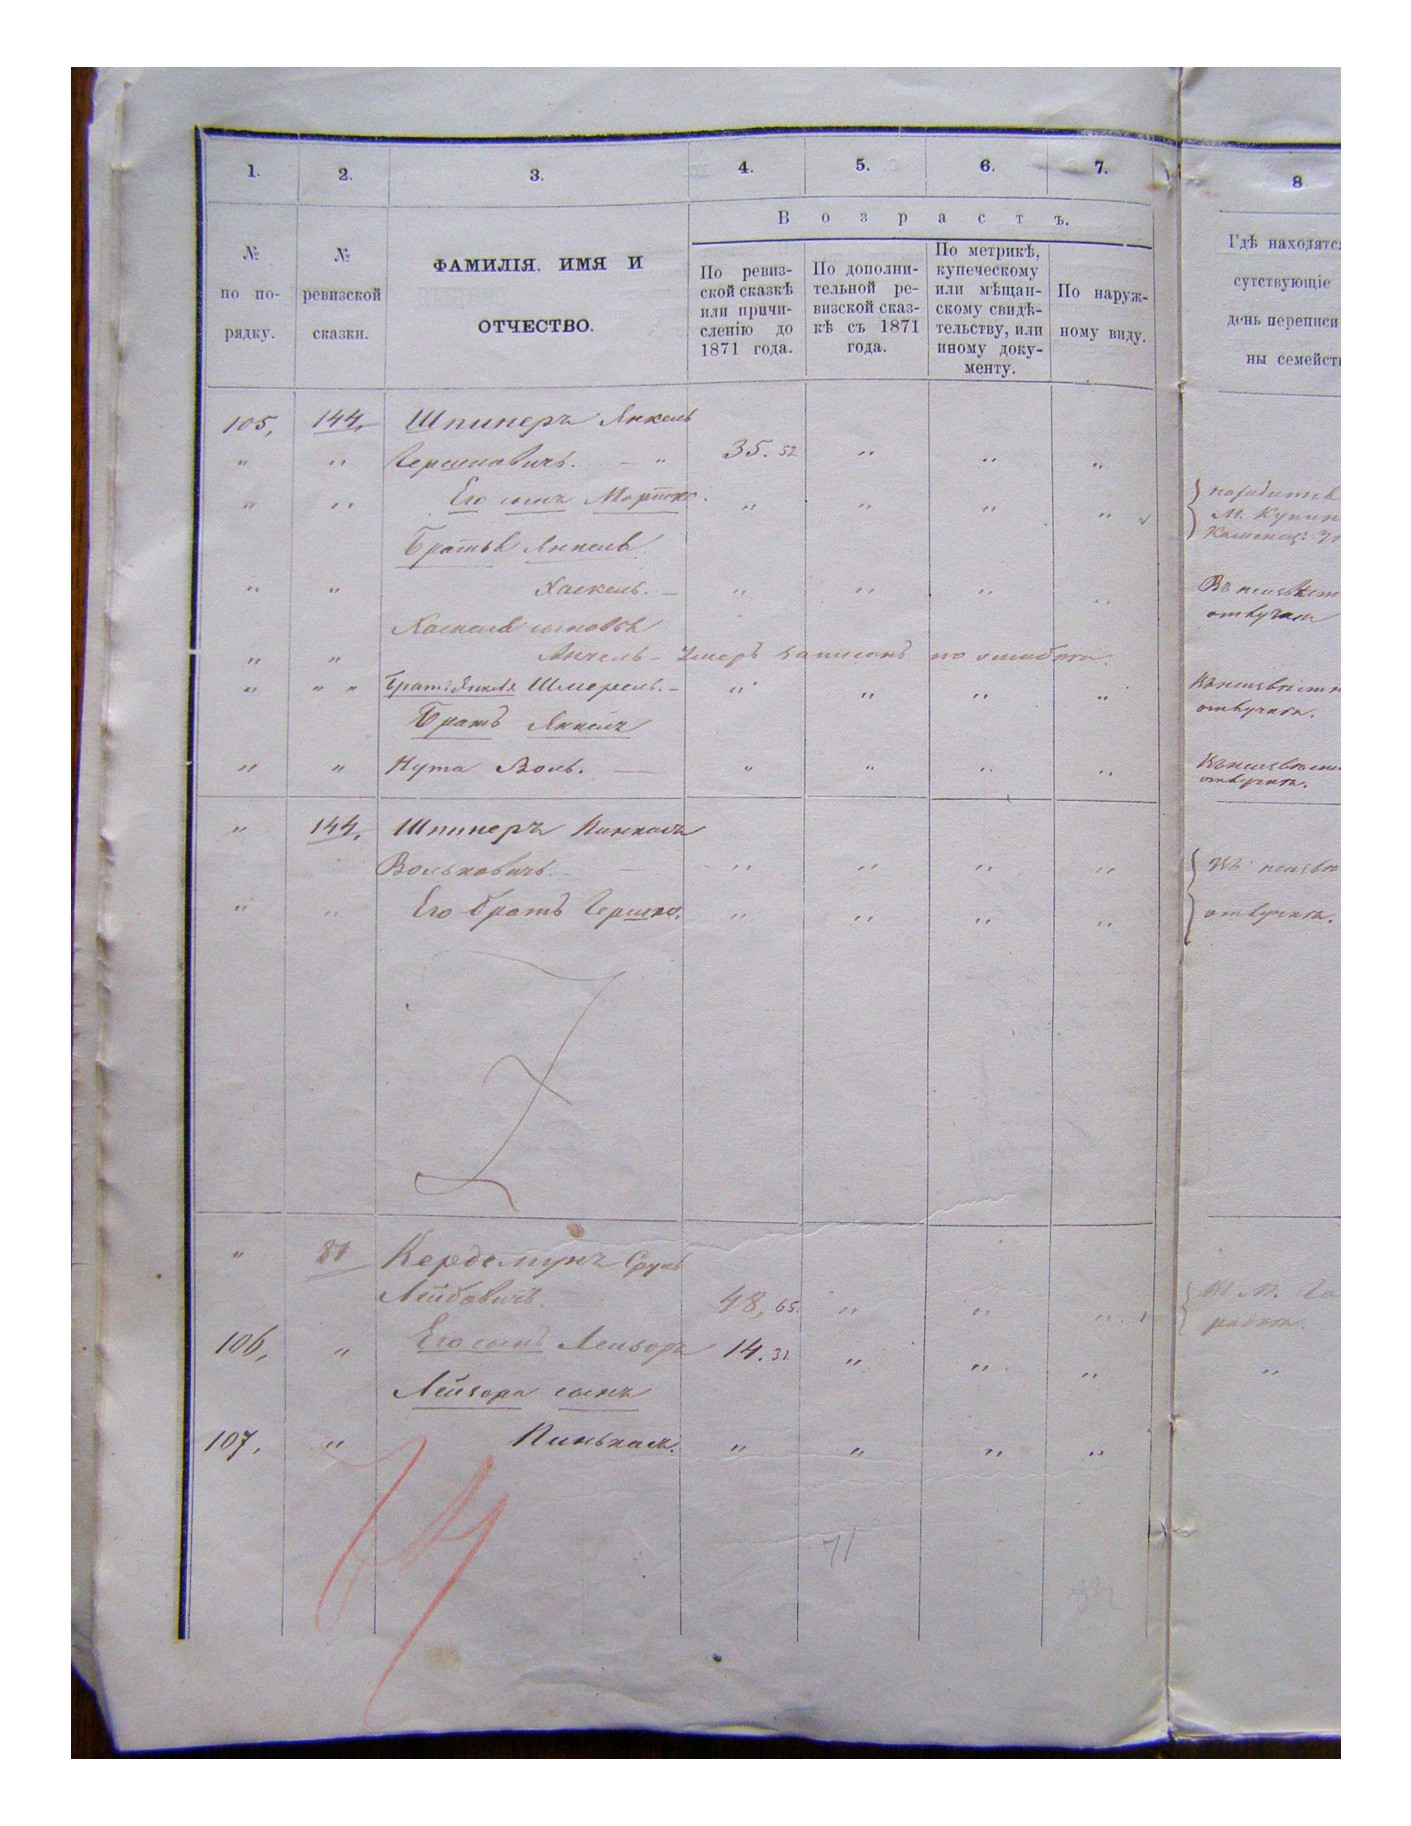 1. 2. 3. 4. 5. 6. 7. 8
В о з р а с т ъ.
№ по по-
рядку.
№
ревизской
сказки.
ФАМИЛІЯ, ИМЯ И
ОТЧЕСТВО.
По ревиз-
ской сказкѣ
или причи-
сленію до
1871 года.
По дополни-
тельной ре-
визской сказ-
кѣ съ 1871
года.
По метрикѣ,
купеческому
или мѣщан-
скому свидѣ-
тельству, или
иному доку-
менту.
По наруж-
ному виду.
Гдѣ находятс
сутствующіе
день переписи
ны семейст
105, 144, Шпинеръ Янкель
" " Гершковичъ. — " 35. 52 " " "
" " Его сынъ Мортко. " " " "
М. Купин
Каменец:
Братья Янкеля
" " Хаскель. — " " " " Въ неизвѣст
отлучкѣ
Хаскеля сыновья
" " Анчель — Умеръ записанъ по ошибкѣ.
" " " Братъ Янкеля Шмерель. — " " " " Въ неизвѣстн
отлучкѣ.
Братъ Янкеля
" " Нута Воль. — " " " " Въ неизвѣстн
отлучкѣ.
" 144, Шпинеръ Пинкасъ
Вольковичъ. — " " " " Въ неизвѣ
" " Его братъ Гершко. " " " " отлучкѣ.
" 81 Кердеманъ Сруль
Лейбовичъ. 48, 65. " " " Въ М. Го
106, " Его сынъ Лейзоръ 14. 31 " " " "
Лейзора сынъ
107, " Пинькас. " " " "
71